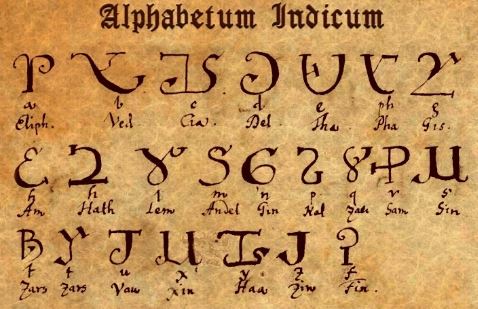 Alphabetum Indicum
a b c d e ph g
Eliph. Veil Cia. Del Tha Pha Gis.
h h l m n p q r s
Am Hath Lem Andel Gin Kal Sam Sin
t t u x y z f
Zars Zars Vau Xin Haa Zin Fin.